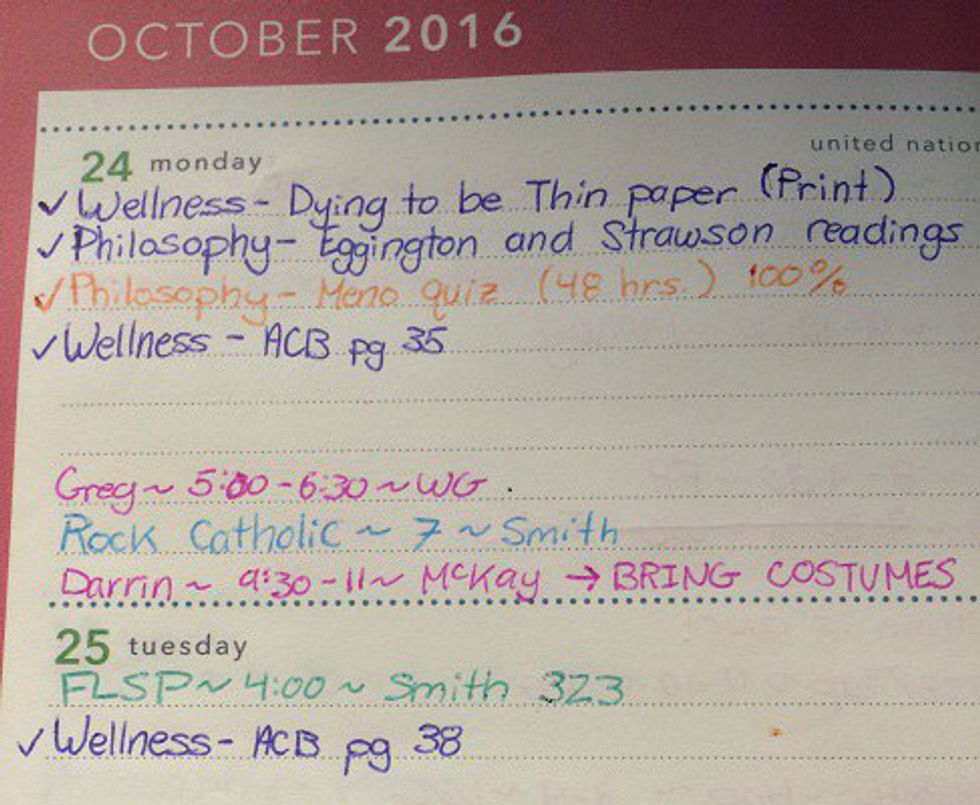 OCTOBER 2016
united nation
24 monday
✓ Wellness - Dying to be Thin paper (Print)
✓ Philosophy - Eggington and Strawson readings
✓ Philosophy - Meno quiz (48 hrs.) 100%
✓ Wellness - ACB pg 35
Greg ~ 5:00 - 6:30 ~ WG
Rock Catholic ~ 7 ~ Smith
Darrin ~ 9:30 - 11 ~ McKay → BRING COSTUMES
25 tuesday
FLSP ~ 4:00 ~ Smith 323
✓ Wellness - ACB pg 38